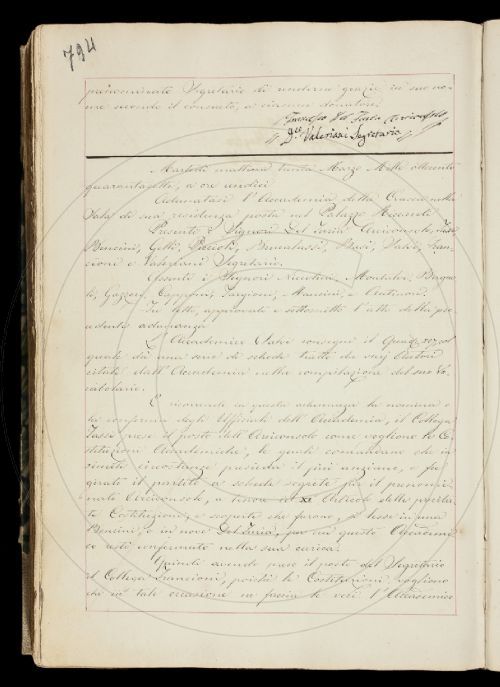 794
prenominato Segretario di renderne grazie in suo no-
me secondo il consueto, a ciascun donatore.
Francesco Del Furia Arciconsolo
Valeriani Segretario
Martedì mattina trenta Marzo Mille ottocento
quarantasette, a ore undici
Adunatasi l'Accademia della Crusca nella
Sala di sua residenza posta nel Palazzo Riccardi
Presenti i Signori Del Furia Arciconsolo, Tassi
Bencini, Gelli, Becchi, Salvi, Fran-
cioni e Valeriani Segretario.
Assenti i Signori Niccolini, Montalvi, Borghi,
Gazzeri, Capponi, Targioni, Mannini, e
Fu letto, approvato e sottoscritto l'atto della pre-
cedente adunanza
L'Accademico Salvi consegnò il col
quale dà una serie di schede tratte da varj Autori
citati dall'Accademia nella compilazione del suo Vo-
cabolario.
E ricorrendo in questa adunanza la nomina o
la conferma degli Uffiziali dell'Accademia, il Collega
Tassi prese il posto dell'Arciconsolo come vogliono le Co-
stituzioni Accademiche, le quali comandano che in
simili circostanze presieda il più anziano, e fu
girato il partito a schede segrete per il prenomi-
nato Arciconsolo, a tenore del XI Articolo delle precita-
te Costituzioni, e scoperte che furono, si lesse in una
Bencini, e in nove Del Furia, per cui questo Accademi-
co restò confermato nella sua carica.
Quindi avendo preso il posto del Segretario
il Collega Francioni, poichè le Costituzioni vogliono
che in tale occasione ne faccia le veci l'Accademico